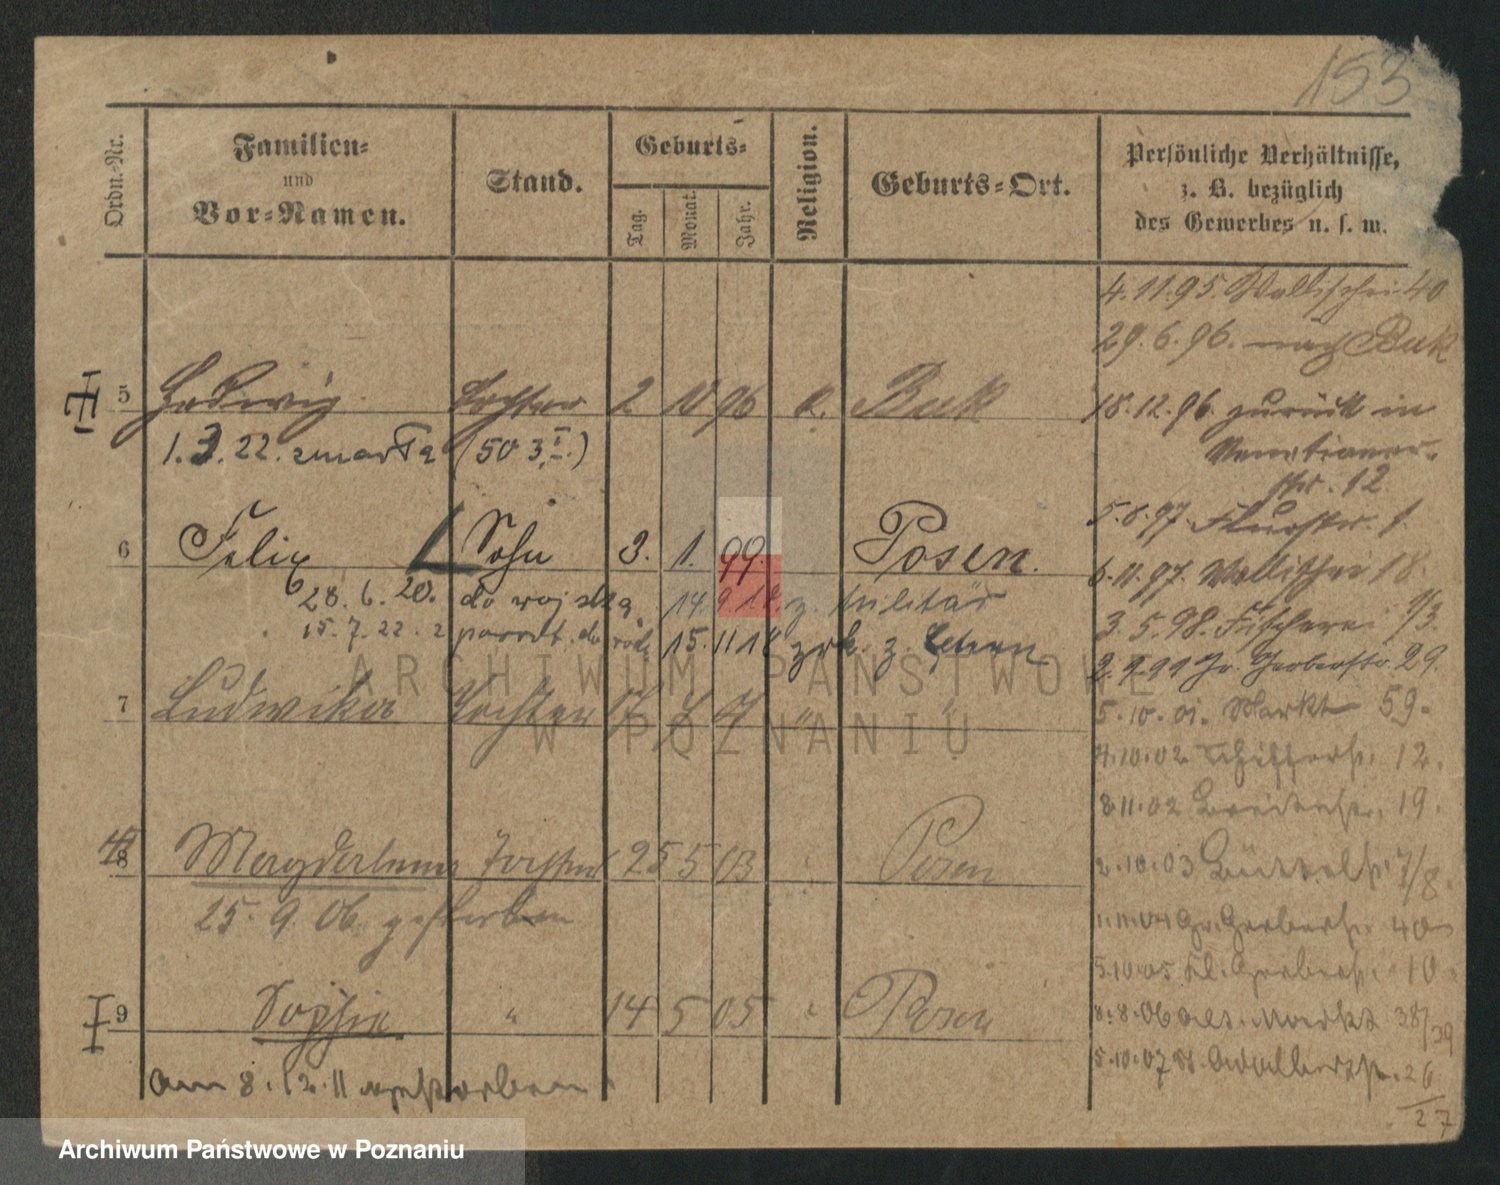 153
Ordn.-Nr.
Familien-
und
Vor-Namen.
Stand.
Geburts-
Tag.
Monat.
Jahr.
Religion.
Geburts-Ort.
Persönliche Verhältnisse,
z. B. bezüglich
des Gewerbes u. s. w.
4.11.95. Wallischei 40
29.6.96. nach Buk
5 Hedwig Tochter 2 10 96 k. Buk
18.12.96 zurück in
Venetianer-
str. 12
1.3.22. zmarła (50 3,I.)
5.8.97. Flurstr. 1
6 Felix Sohn 3. 1. 99. Posen.
6.11.97. Wallischei 18.
28.6.20. do wojska, 14 9 18 z. Militär
3.5.98. Fischerei 1/3.
15.7.22. z powrt. do 15. 11 18 zrk. z.
2.9.99 Gr. Gerberstr. 29.
7 Ludwika Tochter 17 7 "
5.10.01. Markt 59.
4.10.02 Schifferstr. 12.
8.11.02 Breitestr. 19.
8 Magdalena Tochter 25 5 03 Posen
2.10.03 Büttelstr. 7/8.
25.9.06. gestorben
1.11.04 Gr. Gerberstr. 40
5.10.05 Kl. Gerberstr. 10.
9 Sophie " 14 5 05 Posen
8.8.06 Alt. Markt 38/39
5.10.07 St. Adalbertstr. 26
/27
am 8.12.11 gestorben
ARCHIWUM PAŃSTWOWE
W POZNANIU
Archiwum Państwowe w Poznaniu